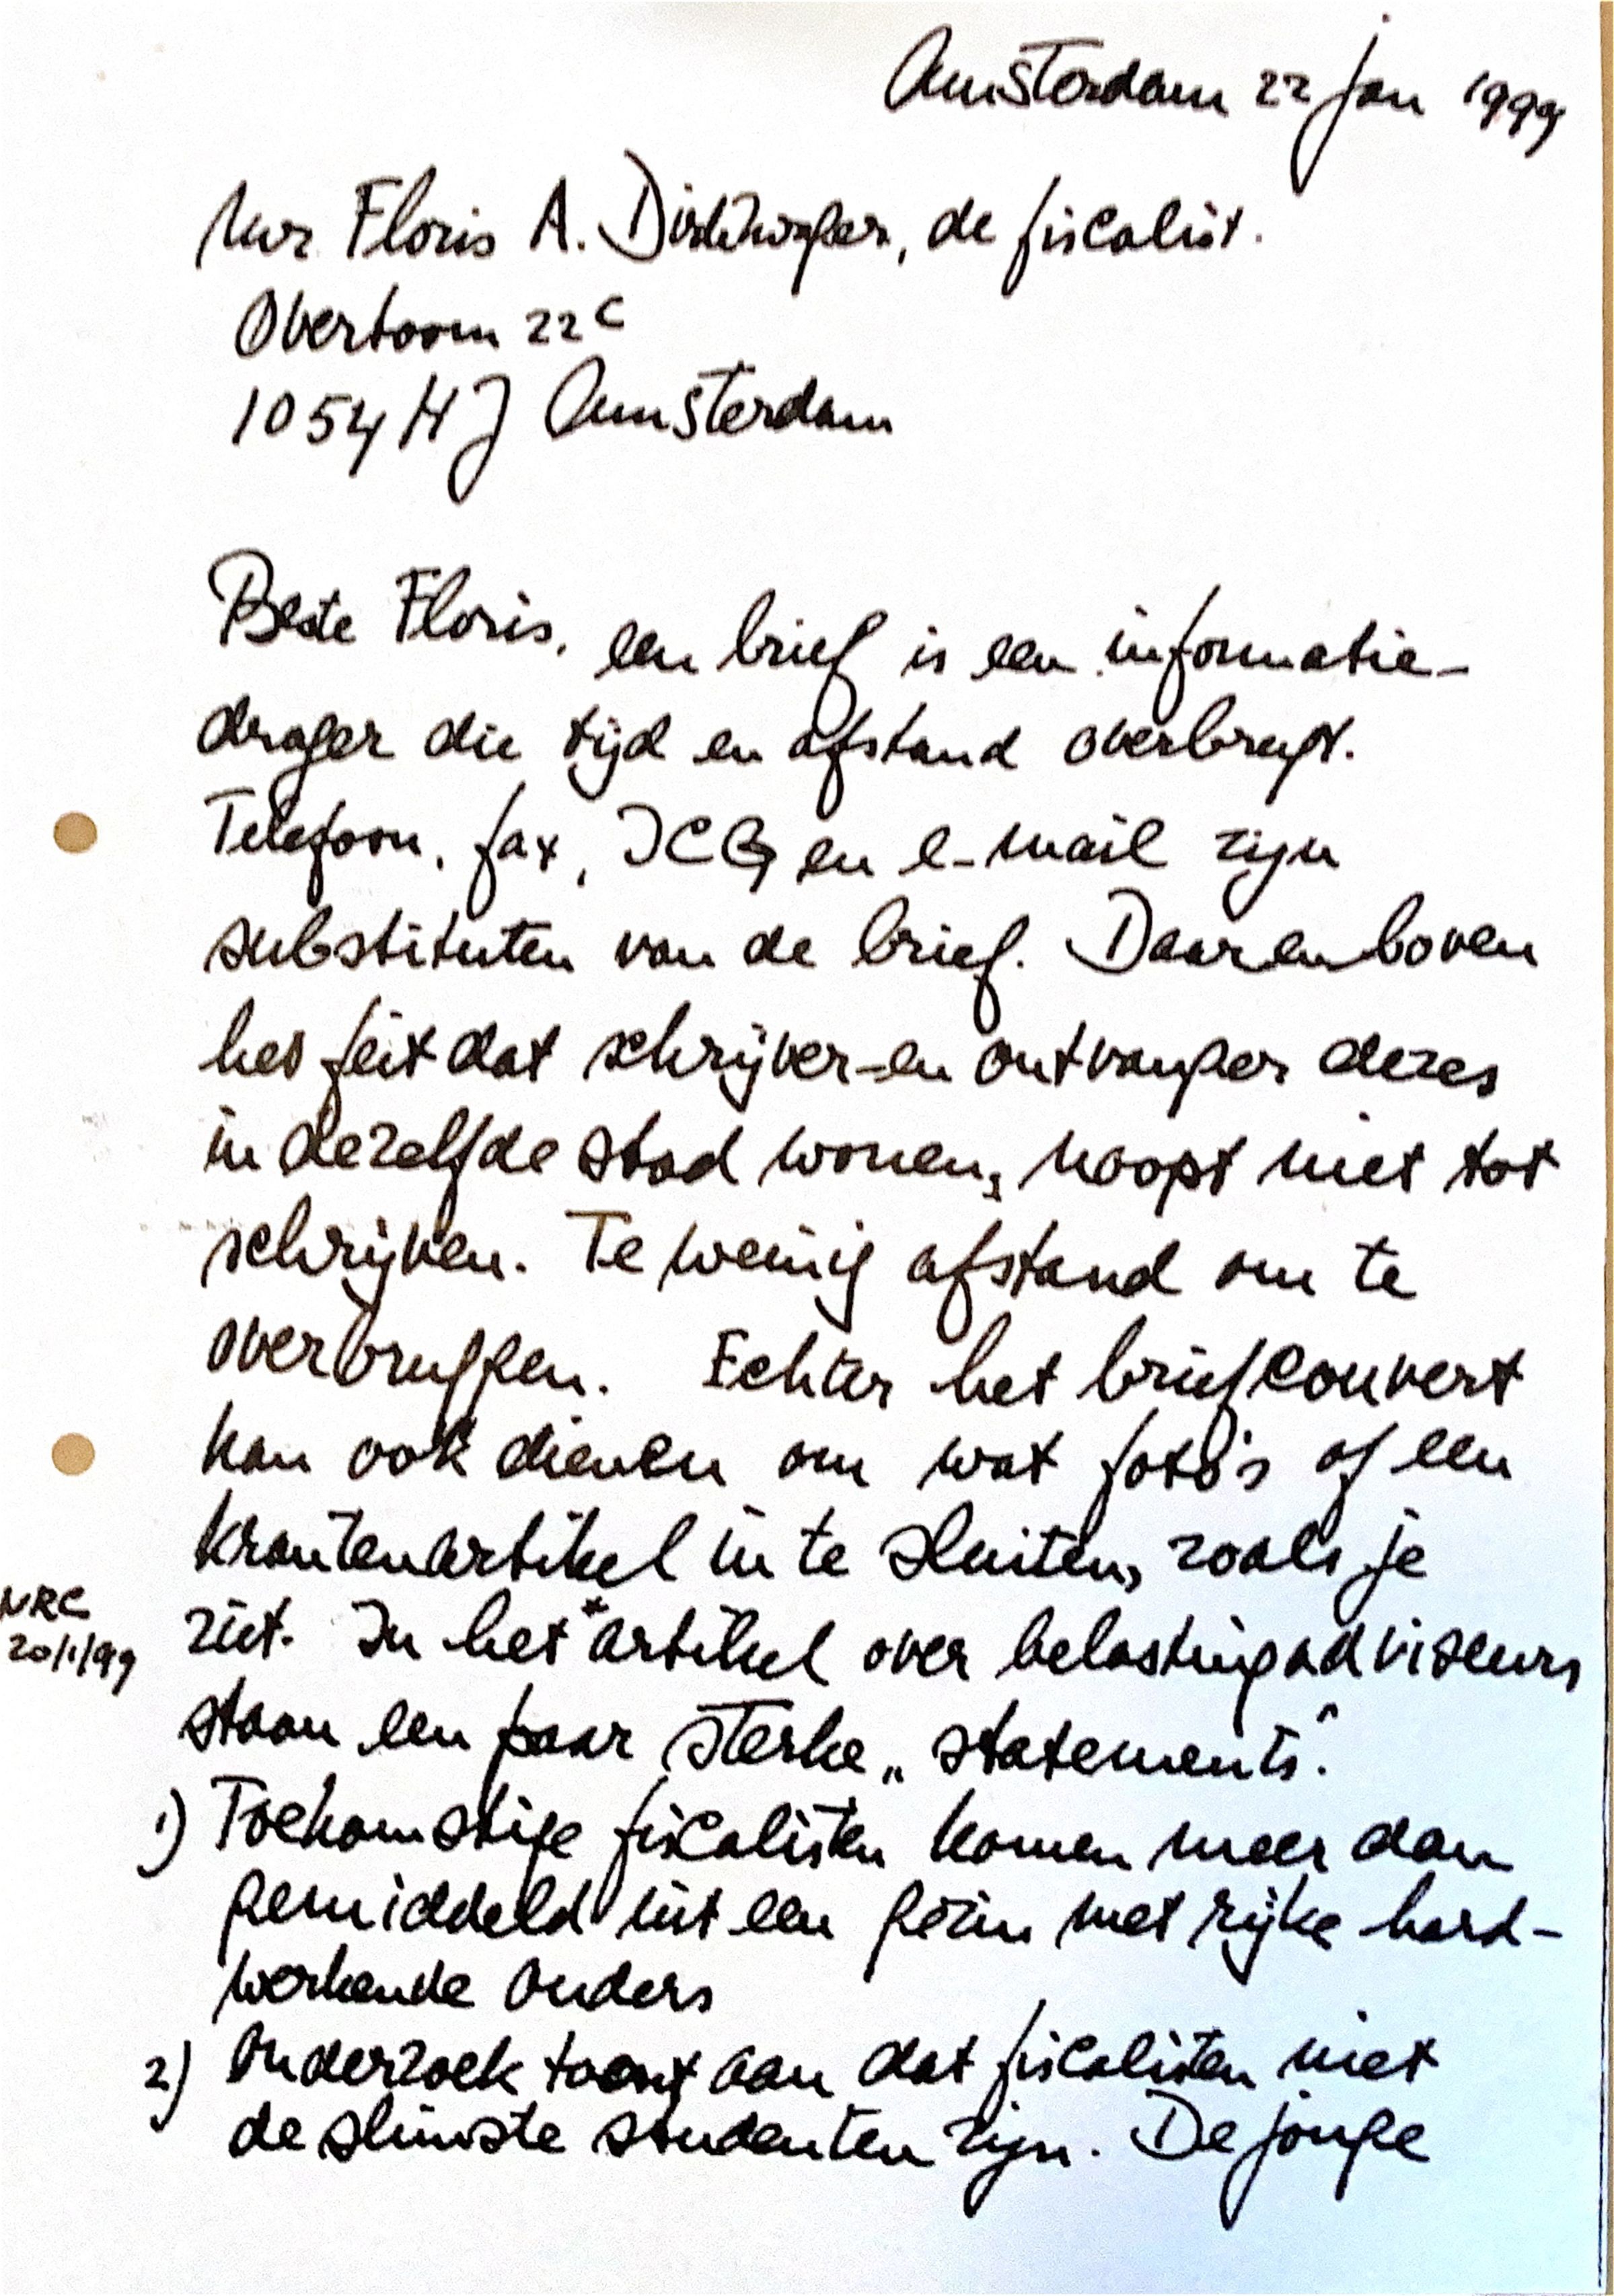 Amsterdam 22 jan 1999
Mr Floris A. Dirkzwager, de fiscalist.
Overtoom 22 C
1054 HJ Amsterdam
Beste Floris, een brief is een informatie-
drager die tijd en afstand overbrugt.
Telefoon, fax, ICQ en e-mail zijn
substituten van de brief. Daarenboven
het feit dat schrijver-en ontvanger dezes
in dezelfde stad wonen, noopt niet tot
schrijven. Te weinig afstand om te
overbruggen. Echter het briefcouvert
kan ook dienen om wat foto's of een
krantenartikel in te sluiten, zoals je
NRC
20/1/99
ziet. In het *artikel over belastingadviseurs
staan een paar sterke „statements".
1) Toekomstige fiscalisten komen meer dan
gemiddeld uit een gezin met rijke hard-
werkende ouders
2) Onderzoek toont aan dat fiscalisten niet
de slimste studenten zijn. De jonge